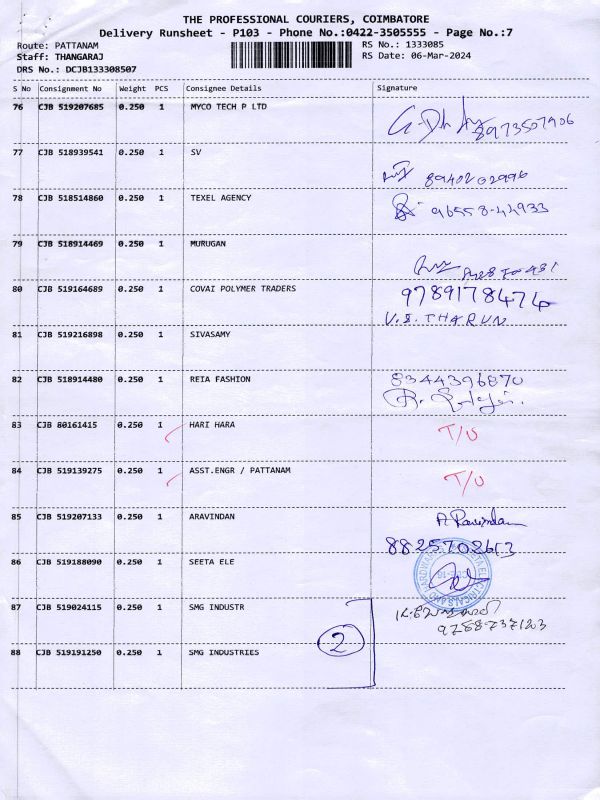 THE PROFESSIONAL COURIERS, COIMBATORE
Delivery Runsheet - P103 - Phone No.:0422-3505555 - Page No.:7
Route: PATTANAM RS No.: 1333085
Staff: THANGARAJ RS Date: 06-Mar-2024
DRS No.: DCJB133308507
S No Consignment No Weight PCS Consignee Details Signature
76 CJB 519207685 0.250 1 MYCO TECH P LTD
8973507906
77 CJB 518939541 0.250 1 SV
89402 02996
78 CJB 518514860 0.250 1 TEXEL AGENCY
96558-44933
79 CJB 518914469 0.250 1 MURUGAN
80 CJB 519164689 0.250 1 COVAI POLYMER TRADERS 9789178474
V.S. THARUN
81 CJB 519216898 0.250 1 SIVASAMY
82 CJB 518914480 0.250 1 REIA FASHION 8344396870
83 CJB 80161415 0.250 1 HARI HARA T/U
84 CJB 519139275 0.250 1 ASST.ENGR / PATTANAM T/U
85 CJB 519207133 0.250 1 ARAVINDAN A. Pavindan
8825702613
86 CJB 519188090 0.250 1 SEETA ELE
87 CJB 519024115 0.250 1 SMG INDUSTR
9788737123
2
88 CJB 519191250 0.250 1 SMG INDUSTRIES